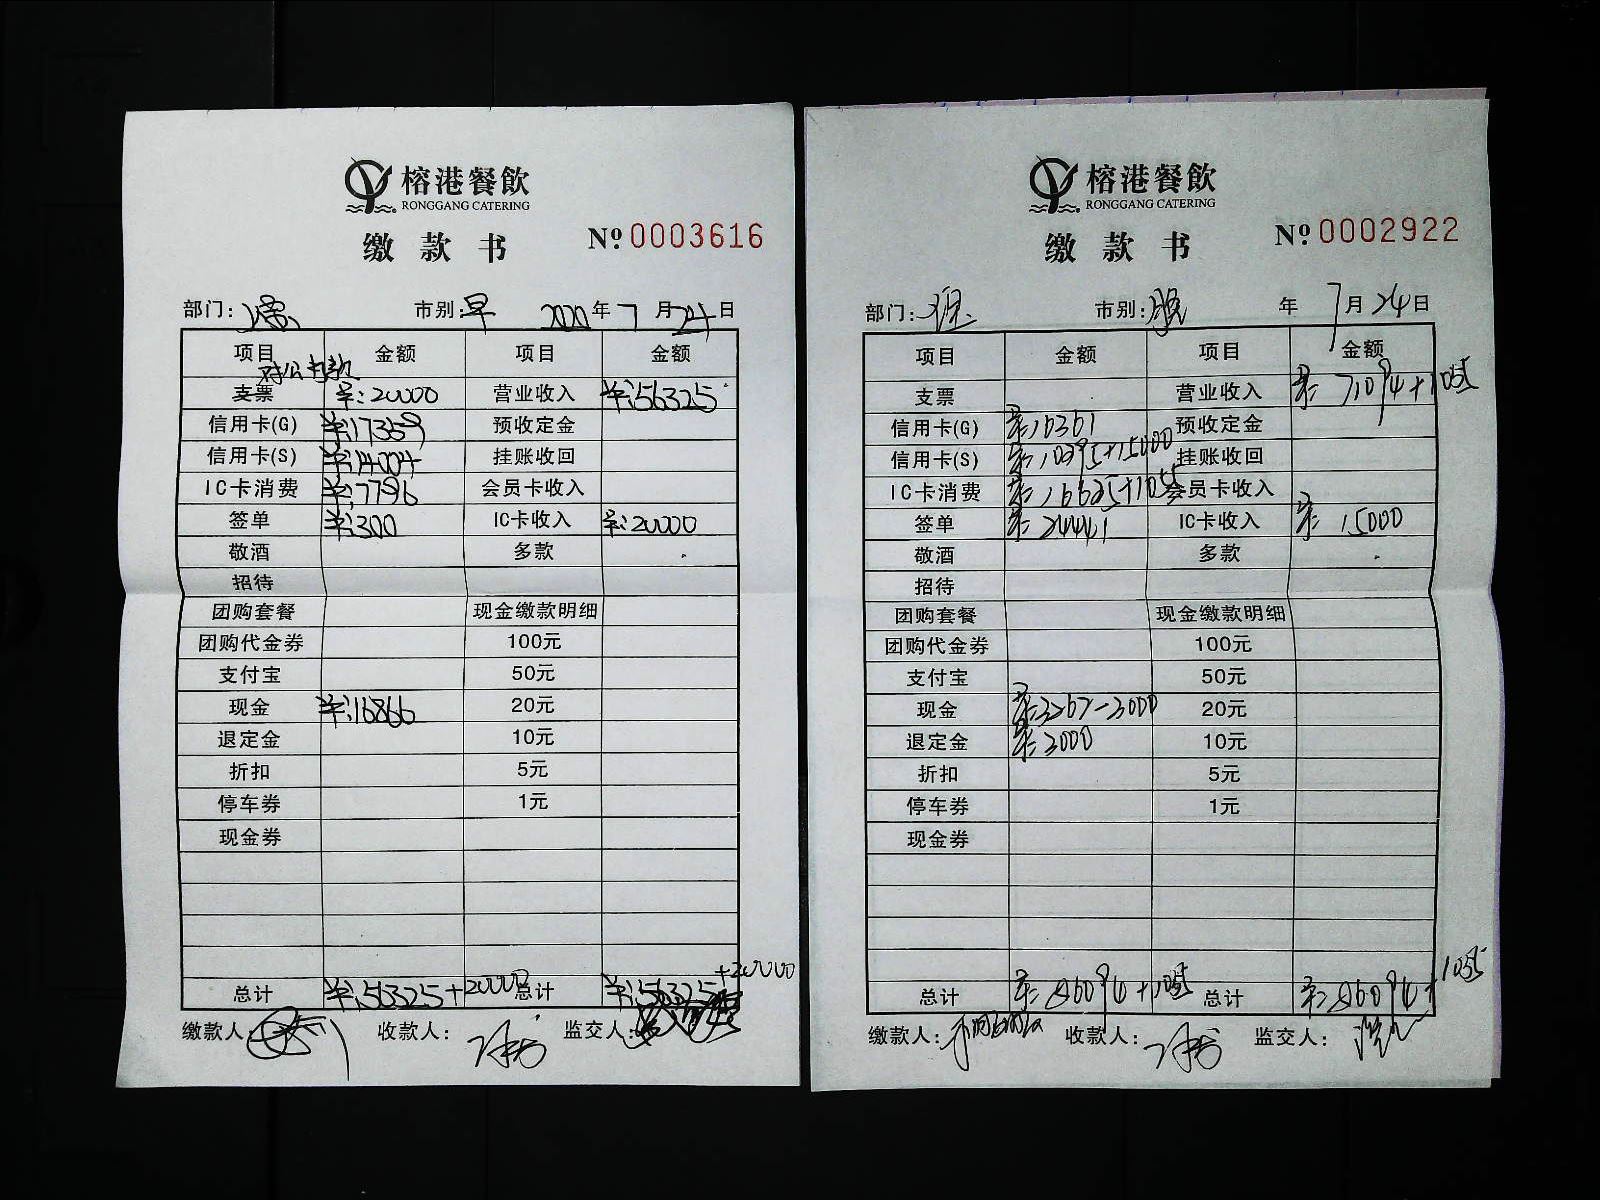 榕港餐飲
RONGGANG CATERING
缴款书 № 0003616
部门: 市别: 早 2020年7月24日
项目 金额 项目 金额
对公转款
支票 ¥:20000 营业收入 ¥:56325
信用卡(G) ¥:17359 预收定金
信用卡(S) ¥:14004 挂账收回
IC卡消费 ¥:7796 会员卡收入
签单 ¥:300 IC卡收入 ¥:20000
敬酒 多款
招待
团购套餐 现金缴款明细
团购代金券 100元
支付宝 50元
现金 ¥:16866 20元
退定金 10元
折扣 5元
停车券 1元
现金券
总计 ¥:56325+20000 总计 ¥:56325+20000
缴款人: 收款人: 监交人:
榕港餐飲
RONGGANG CATERING
缴款书 № 0002922
部门: 市别: 晚 年7月24日
项目 金额 项目 金额
支票 营业收入 ¥:71094+1055
信用卡(G) ¥:16361 预收定金
信用卡(S) ¥:10395+15000 挂账收回
IC卡消费 ¥:16625+1055 会员卡收入
签单 ¥:24441 IC卡收入 ¥:15000
敬酒 多款
招待
团购套餐 现金缴款明细
团购代金券 100元
支付宝 50元
现金 20元
退定金 ¥:3000 10元
折扣 5元
停车券 1元
现金券
总计 ¥:86094+1055 总计 ¥:86094+1055
缴款人: 收款人: 监交人: